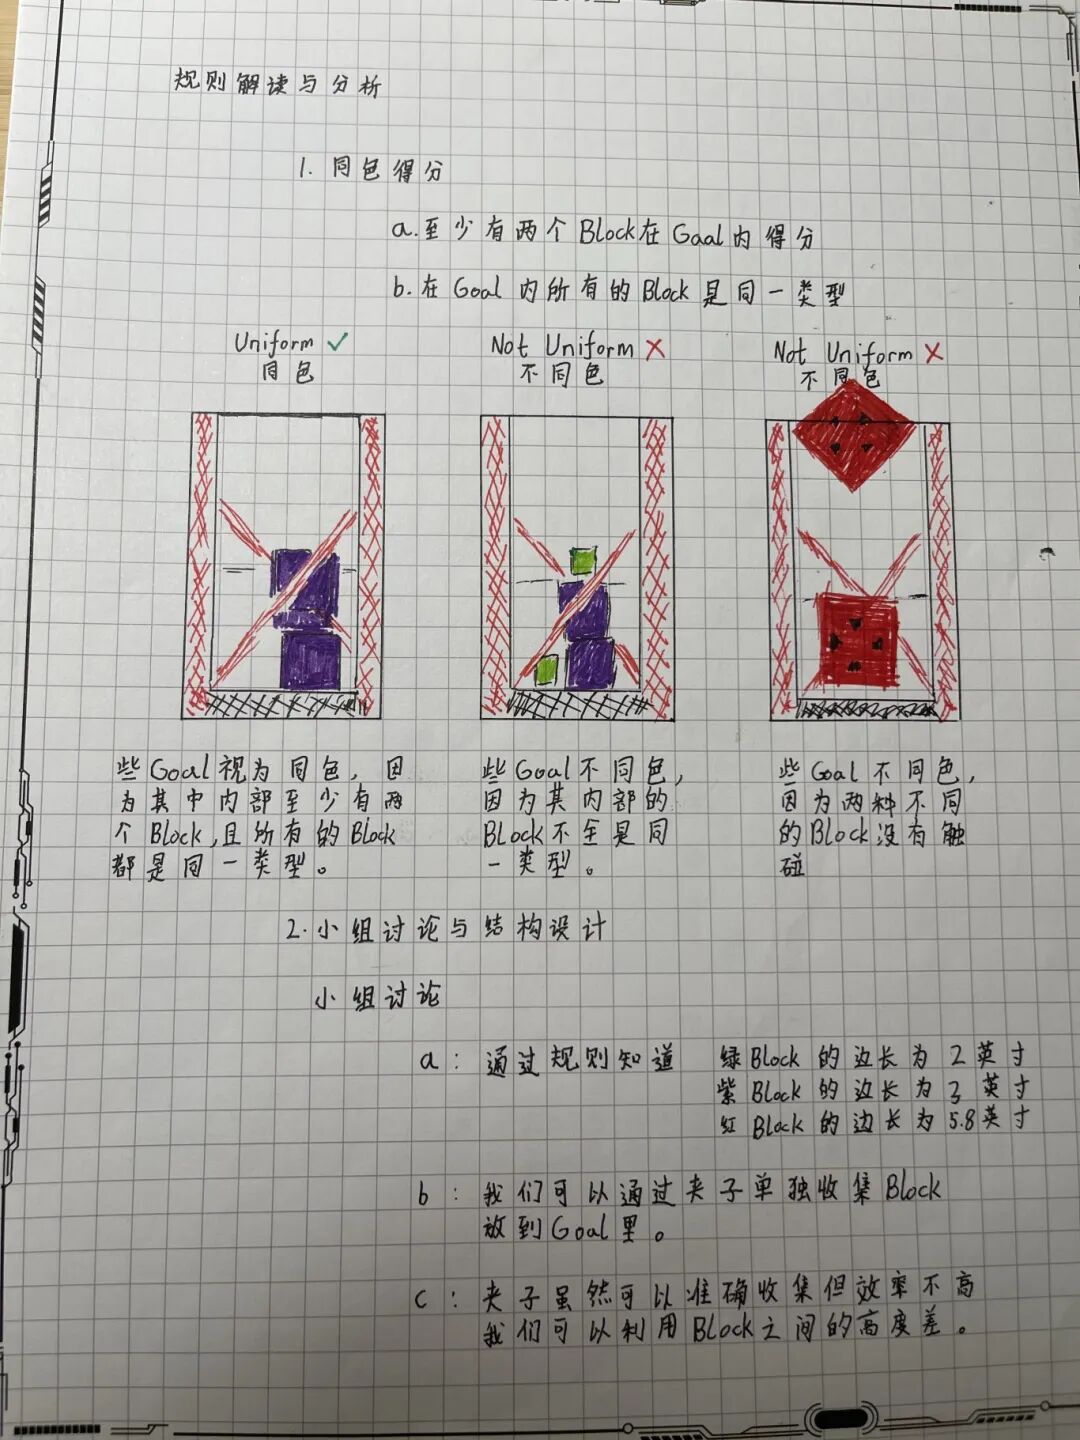 规则解读与分析
1. 同色得分
a.至少有两个Block在Goal内得分
b.在Goal内所有的Block是同一类型
Uniform ✓
同色
Not Uniform ✗
不同色
Not Uniform ✗
不同色
些Goal视为同色,因
为其中内部至少有两
个Block,且所有的Block
都是同一类型。
些Goal不同色,
因为其内部的
Block不全是同
一类型。
些Goal不同色,
因为两种不同
的Block没有触
碰
2.小组讨论与结构设计
小组讨论
a: 通过规则知道 绿Block的边长为2英寸
紫Block的边长为3英寸
红Block的边长为5.8英寸
b: 我们可以通过夹子单独收集Block
放到Goal里。
c: 夹子虽然可以准确收集但效率不高
我们可以利用Block之间的高度差。